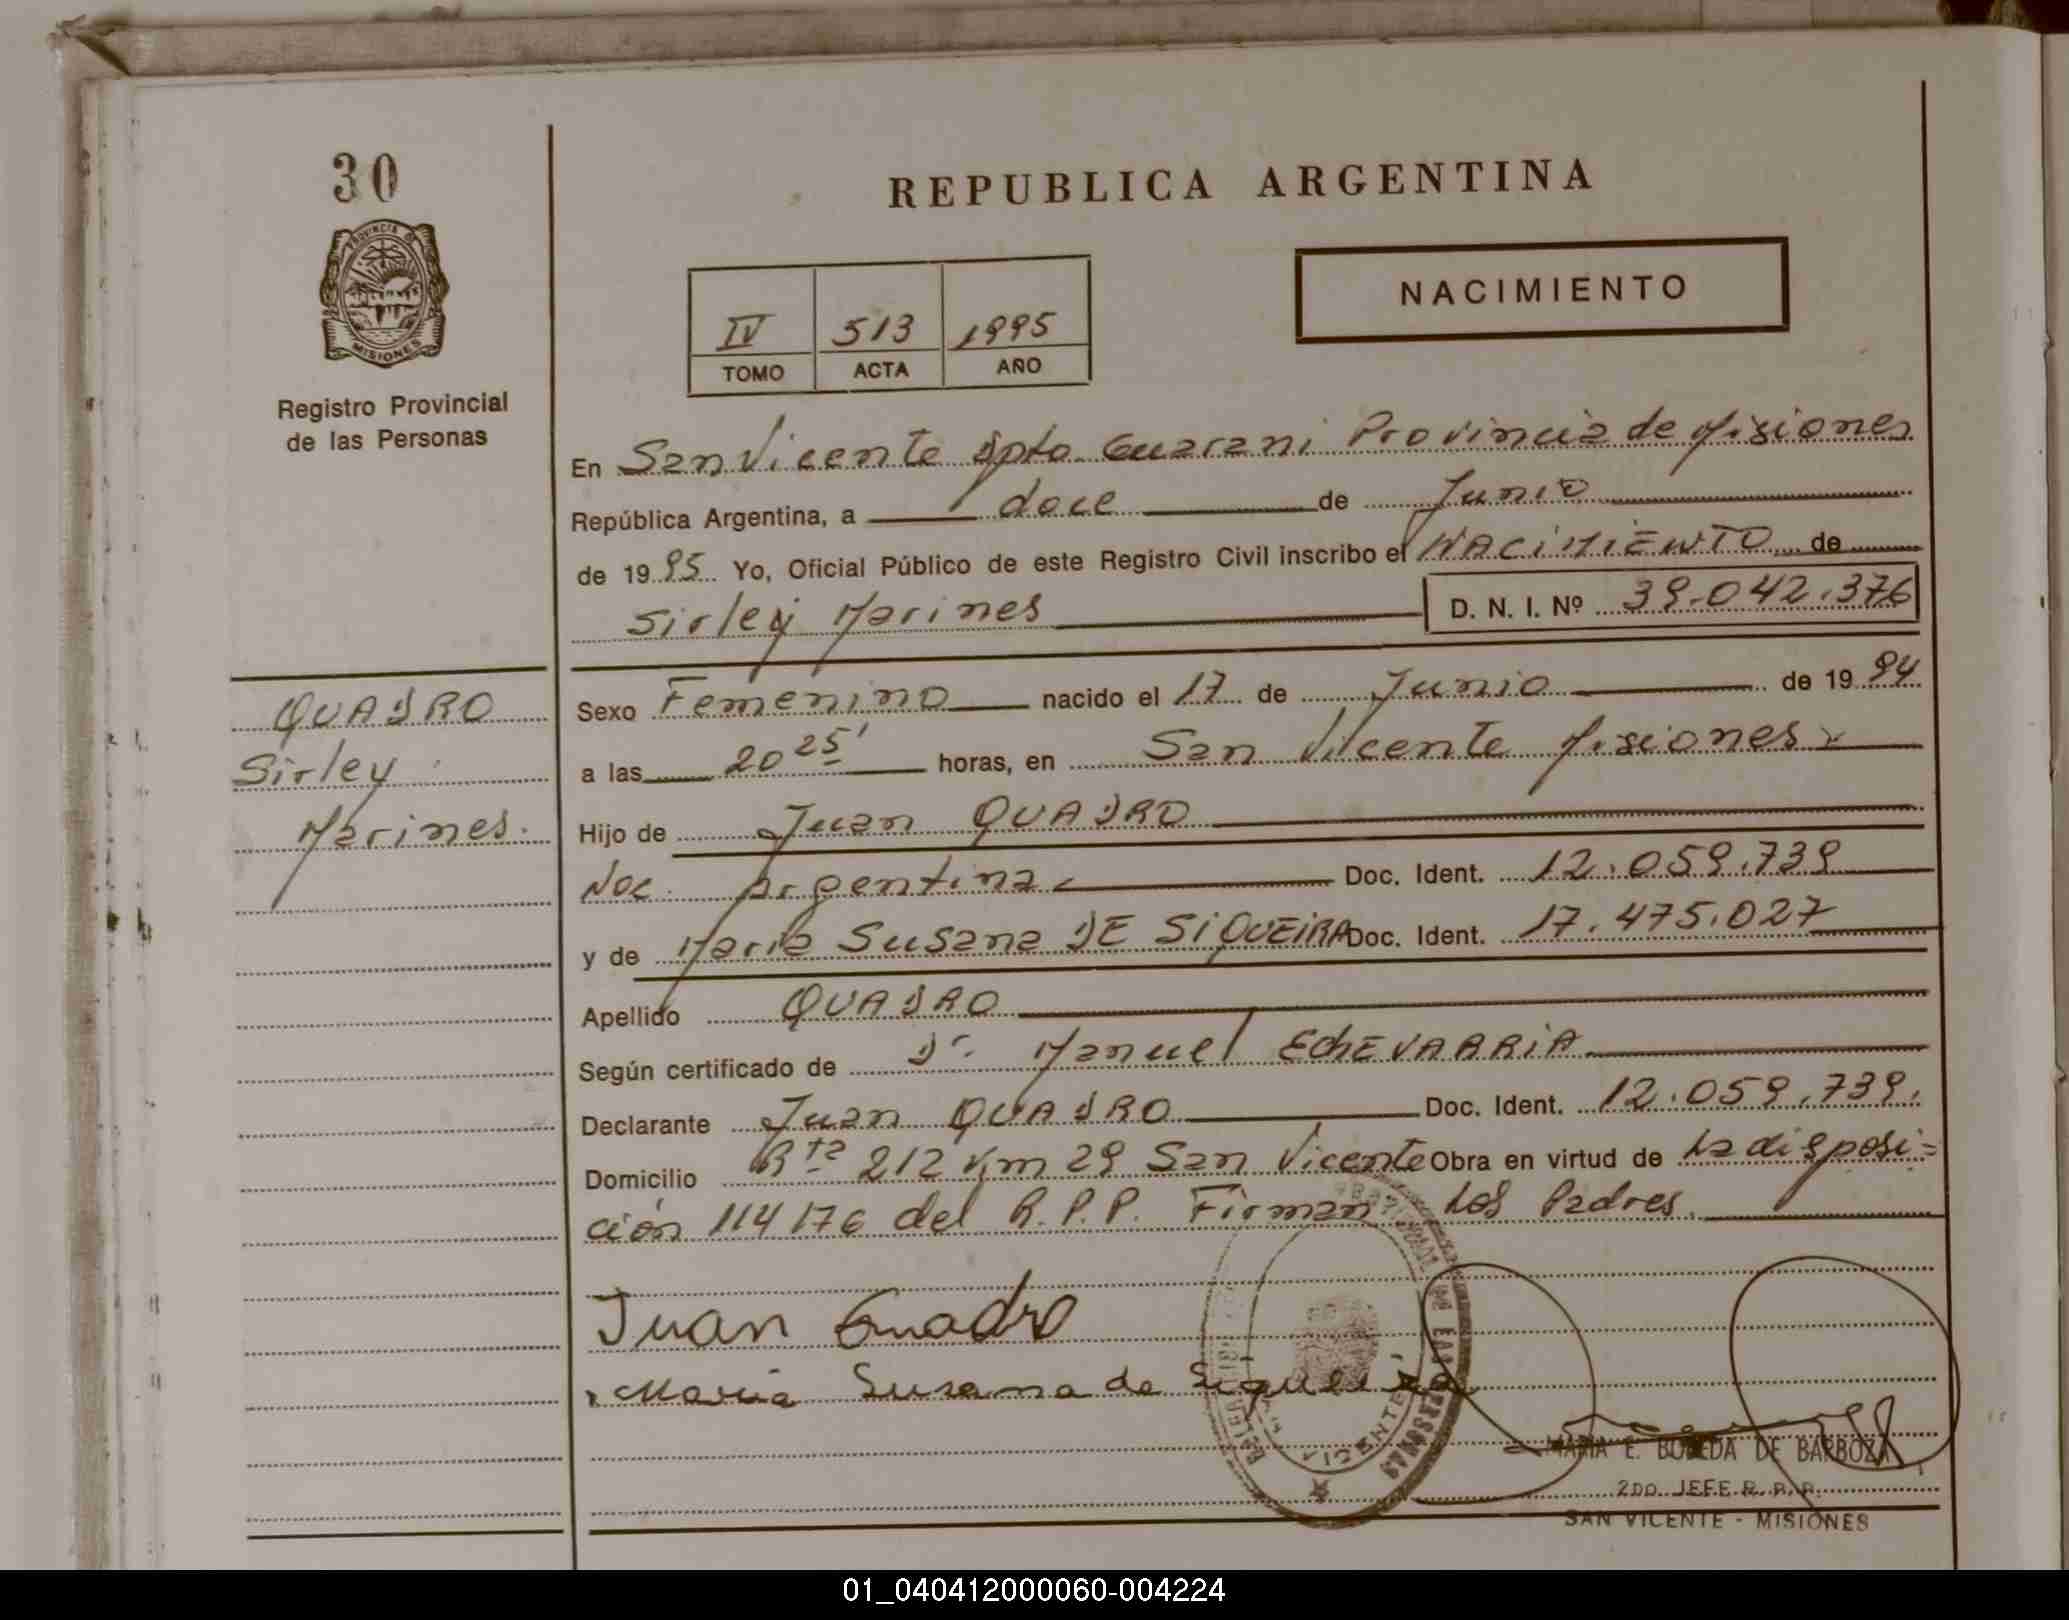 30
REPUBLICA ARGENTINA
PROVINCIA DE
MISIONES
Registro Provincial
de las Personas
NACIMIENTO
IV 513 1995
TOMO ACTA AÑO
En San Vicente Dpto. Guarani Provincia de Misiones
República Argentina, a doce de Junio
de 1995. Yo, Oficial Público de este Registro Civil inscribo el NACIMIENTO de
Sirley Marines D. N. I. Nº 39.042.376
QUADRO
Sirley
Marines.
Sexo Femenino nacido el 17 de Junio de 1994
a las 20 25' horas, en San Vicente Misiones
Hijo de Juan QUADRO
Nac. Argentina Doc. Ident. 12.059.739
y de Maria Susana DE SIQUEIRA Doc. Ident. 17.475.027
Apellido QUADRO
Según certificado de Dr. Manuel ECHEVARRIA
Declarante Juan QUADRO Doc. Ident. 12.059.739.
Domicilio Rta 212 Km 29 San Vicente Obra en virtud de La disposi=
ción 114176 del R.P.P. Firman Los Padres.
Juan Quadro
Maria Susana de Siqueira
MARIA E. BOVEDA DE BARBOZA
2DO. JEFE R. P. P.
SAN VICENTE - MISIONES
01_040412000060-004224